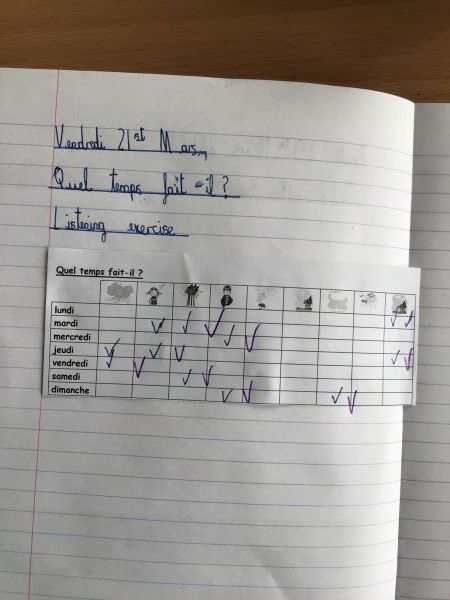 Vendredi 21st Mars
Quel temps fait-il ?
Listening exercise
Quel temps fait-il ?
lundi
mardi
mercredi
jeudi
vendredi
samedi
dimanche